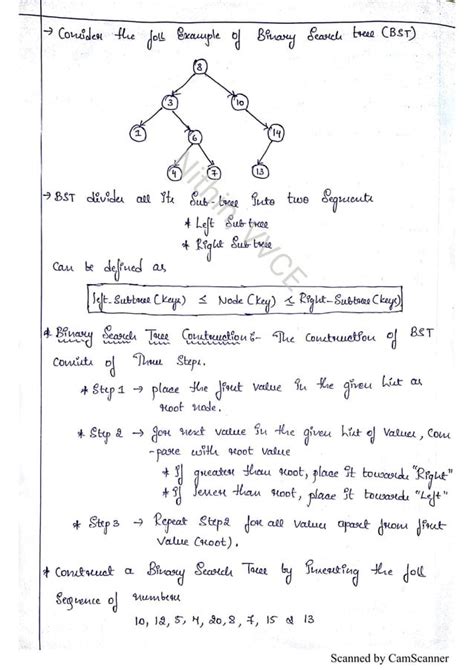 → Consider the foll Example of Binary Search tree (BST)
8
3
10
1
6
14
4
7
13
→ BST divides all its Sub-tree into two Segments
* Left Subtree
* Right Subtree
Can be defined as
left-Subtree (keys) ≤ Node (key) ≤ Right-Subtree (keys)
* Binary Search Tree Construction:- The construction of BST
Consists of Three Steps.
* Step 1 → place the first value in the given list as
root node.
* Step 2 → for next value in the given list of values, com
-pare with root value
* If greater than root, place it towards "Right"
* If lesser than root, place it towards "Left"
* Step 3 → Repeat Step 2 for all values apart from first
value (root).
* Construct a Binary Search Tree by Inserting the foll
Sequence of numbers
10, 12, 5, 4, 20, 8, 7, 15 & 13
Nithin, VVCE
Scanned by CamScanner